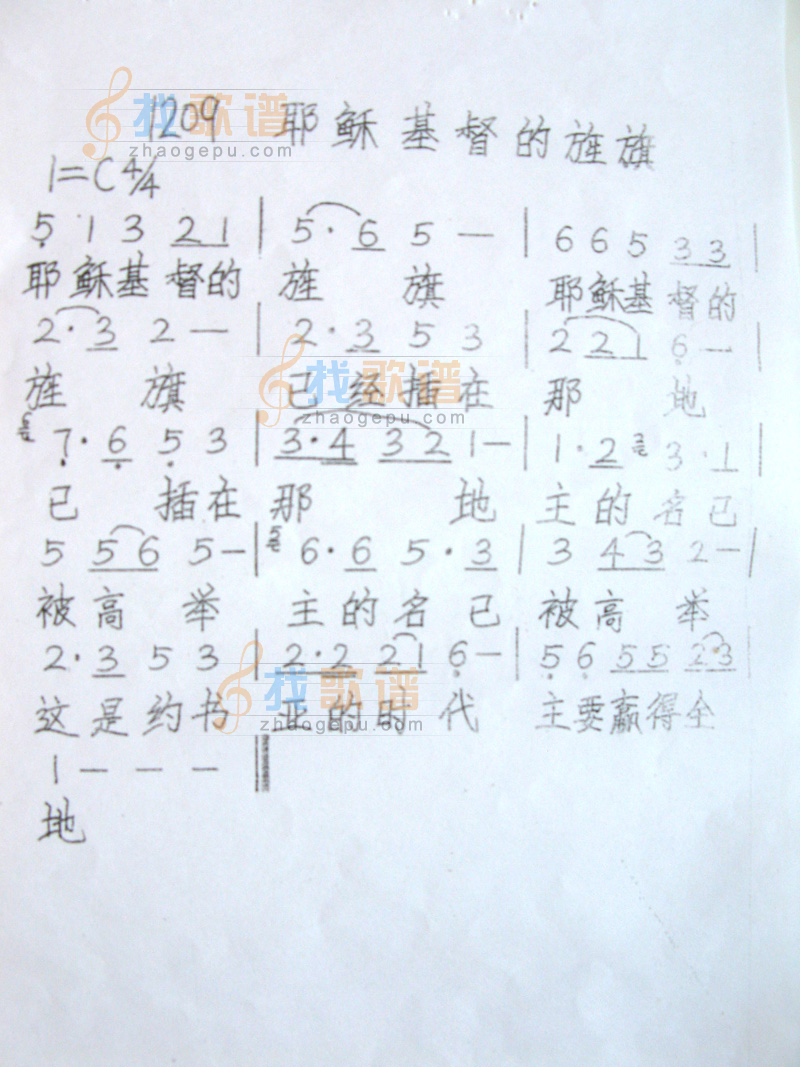 1209 耶稣基督的旌旗
1=C 4/4
5 1 3 2 1 | 5· 6 5 — | 6 6 5 3 3 |
耶稣基督的 旌 旗 耶稣基督的
2· 3 2 — | 2· 3 5 3 | 2 2 1 6 — |
旌 旗 已经插在 那 地
7· 6 5 3 | 3· 4 3 2 1 — | 1· 2 3· 1 |
已 插在 那 地 主的名已
5 5 6 5 — | 6· 6 5· 3 | 3 4 3 2 — |
被高 举 主的名已 被高 举
2· 3 5 3 | 2· 2 2 1 6 — | 5 6 5 5 2 3
这是约书 亚的时代 主要赢得全
1 — — —
地
找歌谱 zhaogepu.com
找歌谱 zhaogepu.com
找歌谱 zhaogepu.com